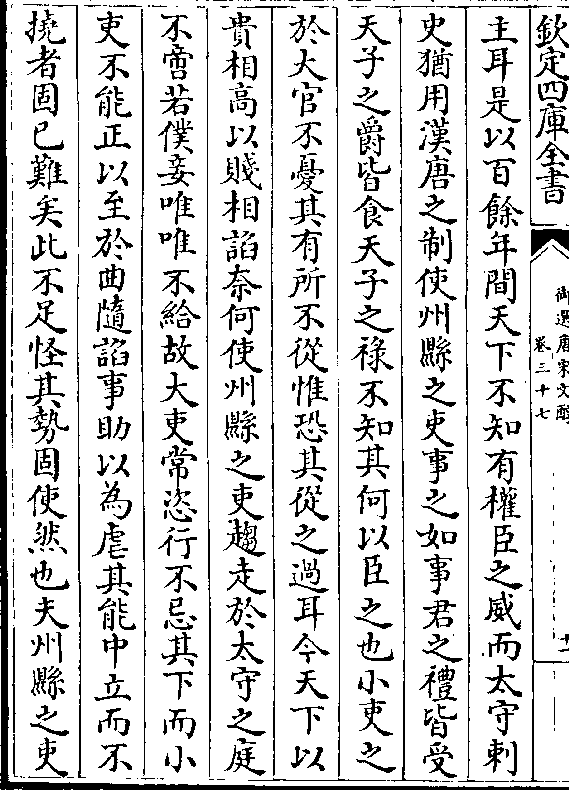 欽定四庫全書
御選唐宋文醇
卷三十七
主耳是以百餘年間天下不知有權臣之威而太守刺
史猶用漢唐之制使州縣之吏事之如事君之禮皆受
天子之爵皆食天子之祿不知其何以臣之也小吏之
於大官不憂其有所不從惟恐其從之過耳今天下以
貴相高以賤相諂奈何使州縣之吏趨走於太守之庭
不啻若僕妾唯唯不給故大吏常恣行不忌其下而小
吏不能正以至於曲隨諂事助以為虐其能中立而不
撓者固已難矣此不足怪其勢固使然也夫州縣之吏